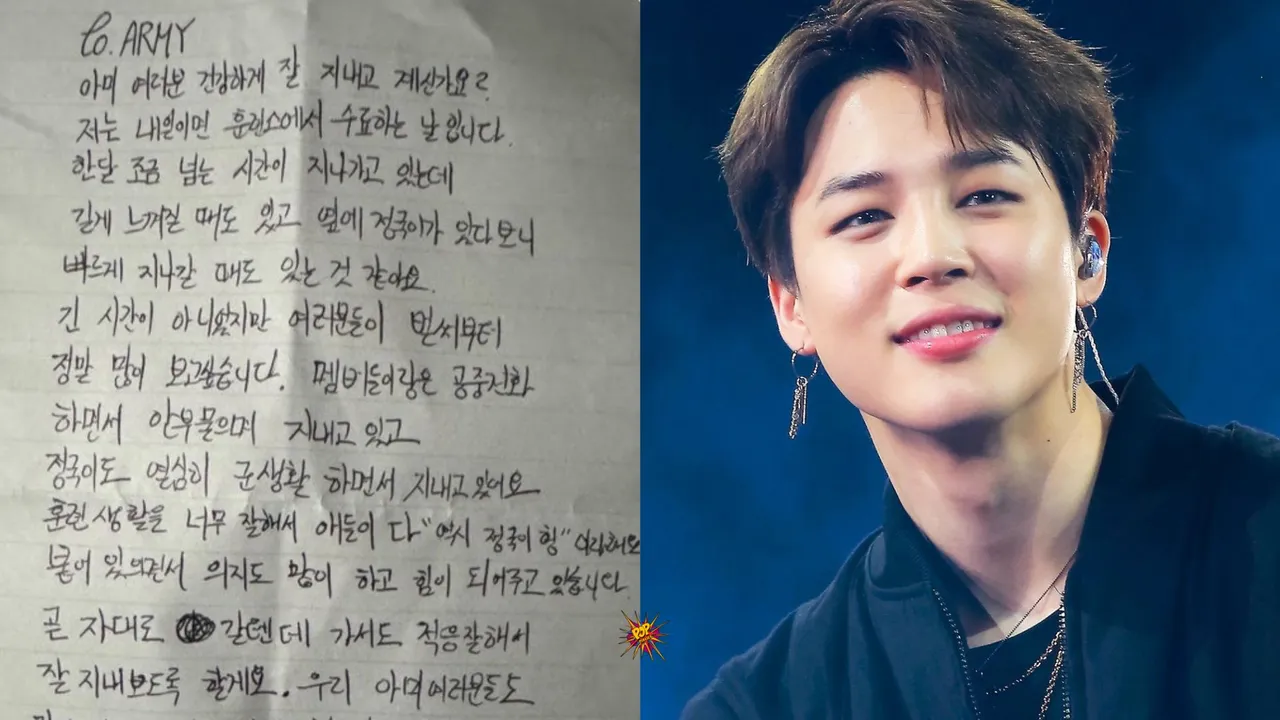 to. ARMY
아미 여러분 건강하게 잘 지내고 계신가요?
저는 내일이면 훈련소에서 수료하는 날 입니다.
한달 조금 넘는 시간이 지나가고 있는데
길게 느껴질 때도 있고 옆에 정국이가 있다보니
빠르게 지나갈 때도 있는 것 같아요.
긴 시간이 아니었지만 여러분들이 벌써부터
정말 많이 보고싶습니다. 멤버들이랑은 공중전화
하면서 안부물으며 지내고 있고
정국이도 열심히 군생활 하면서 지내고 있어요
훈련 생활을 너무 잘해서 애들이 다 "역시 정국이 형" 이라해요
붙어 있으면서 의지도 많이 하고 힘이 되어주고 있습니다
곧 자대로 갈텐데 가서도 적응잘해서
잘 지내보도록 할게요. 우리 아미여러분들도
POP